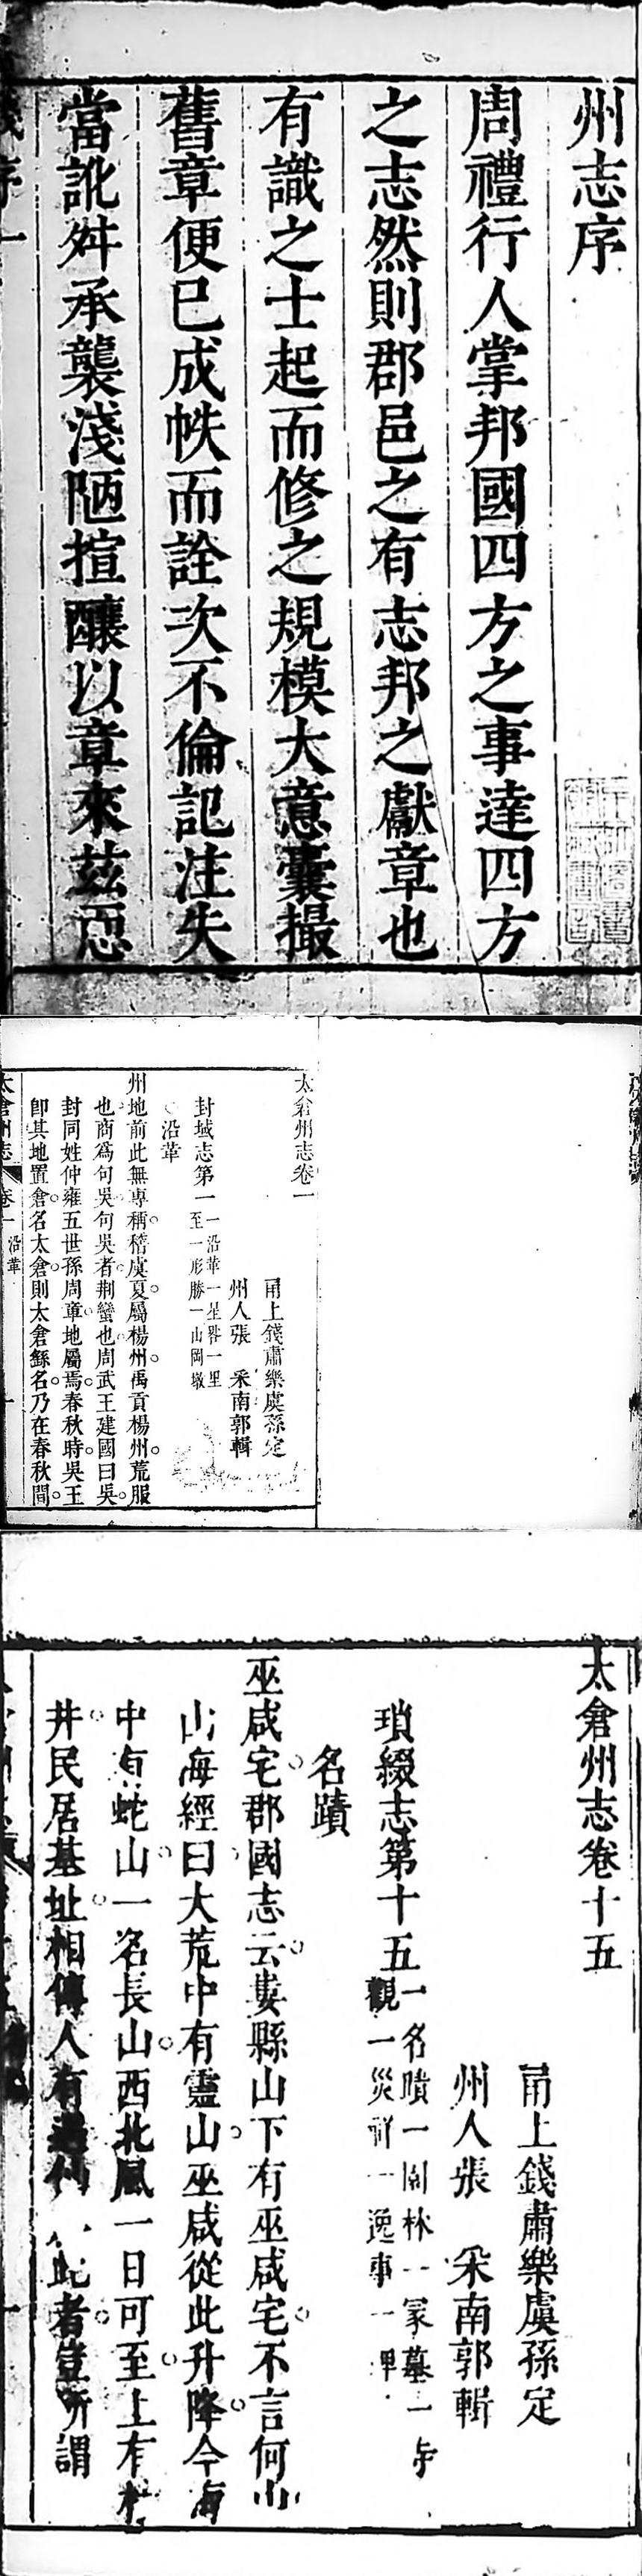 州志序
周禮行人掌邦國四方之事達四方
之志然則郡邑之有志邦之獻章也
有識之士起而修之規模大意囊撮
舊章便已成帙而詮次不倫記注失
當訛舛承襲淺陋揎釀以章來茲恧
太倉州志卷一
甬上錢肅樂虞孫定
州人張 采南郭輯
封域志第一 一沿革一星野一里
至一形勝一山岡墩
沿革
州地前此無專稱稽虞夏屬楊州禹貢楊州荒服
也商爲句吳句吳者荆蠻也周武王建國曰吳
封同姓仲雍五世孫周章地屬焉春秋時吳王
卽其地置倉名太倉則太倉繇名乃在春秋間
太倉州志 卷一 沿革 一
太倉州志卷十五
甬上錢肅樂虞孫定
州人張 采南郭輯
瑣綴志第十五 一名蹟一園林一冡墓一寺
觀一災祥一逸事一
名蹟
巫咸宅郡國志云婁縣山下有巫咸宅不言何山
山海經曰大荒中有靈山巫咸從此升降今海
中有蛇山一名長山西北風一日可至上有
井民居基址相傳人有 此者豈所謂